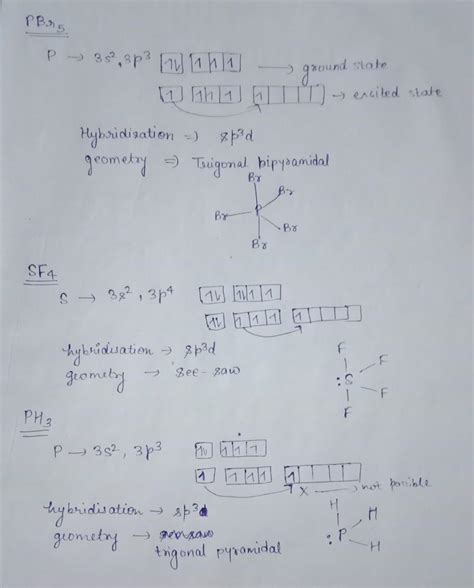 PBr5
P → 3s², 3p³ 1↓ 1 1 1 → ground state
1 1 1 1 1 → excited state
Hybridisation => sp³d
geometry => Trigonal bipyramidal
Br
Br
Br P
Br
Br
SF4
S → 3s², 3p⁴ 1↓ 1↓ 1 1
1↓ 1 1 1 1
hybridisation → sp³d
geometry → See-saw
F
F
:S
F
F
PH3
P → 3s², 3p³ 1↓ 1 1 1
1 1 1 1 1
X → not possible
hybridisation → sp³
geometry →
trigonal pyramidal
H
H
:P
H